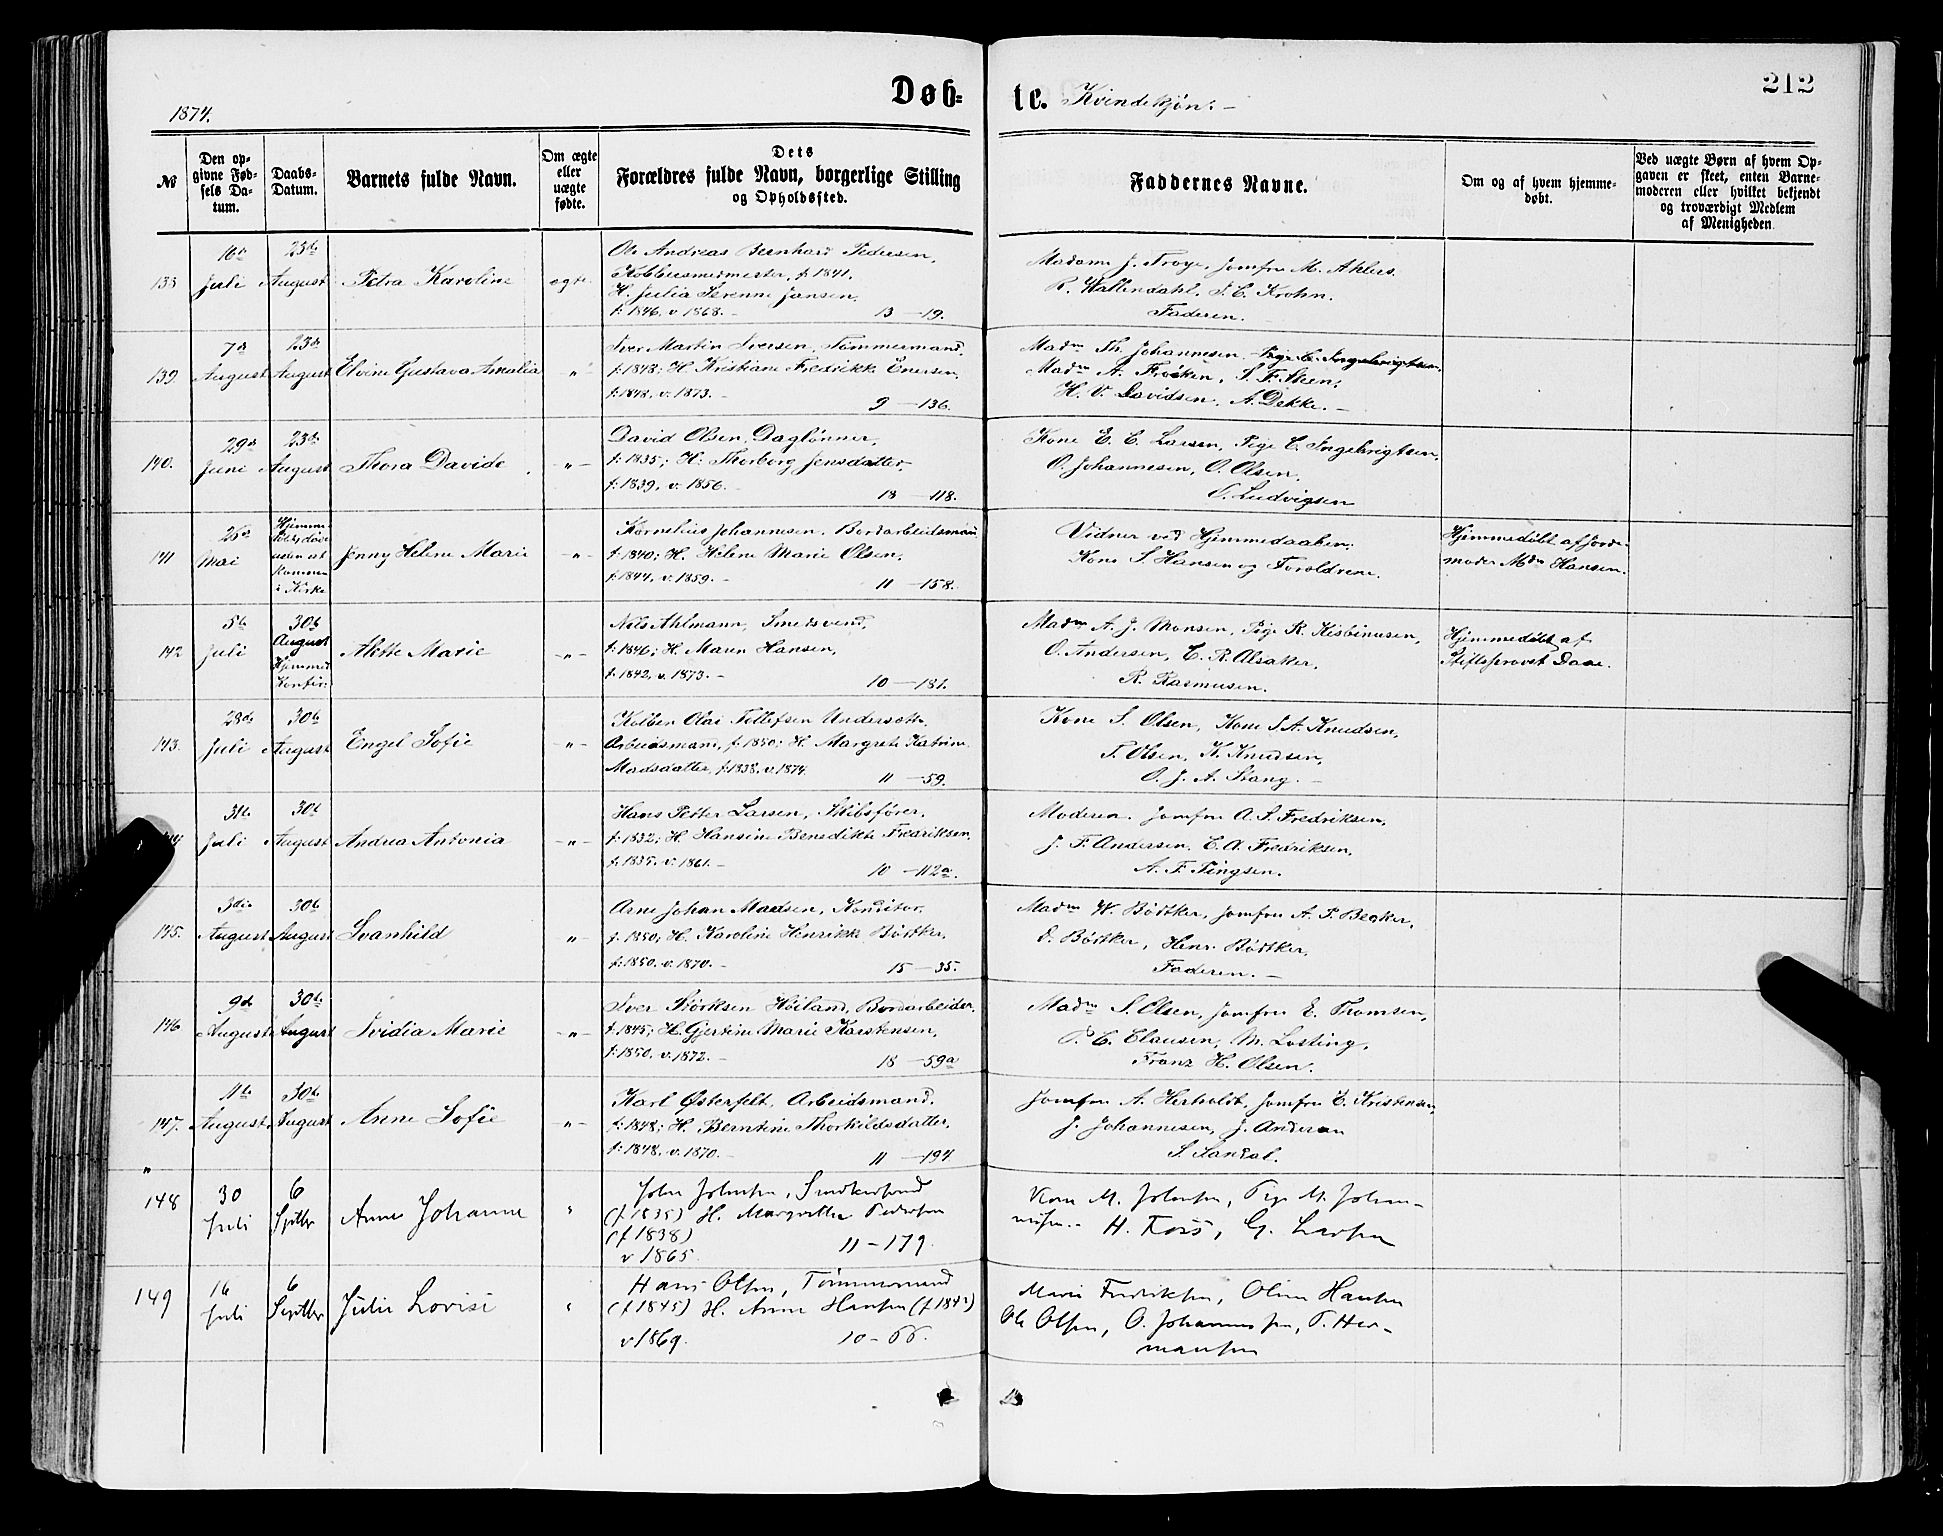 1874.
Døb-
te. Kvindekjøn. –
212
№
Den op-
givne Fød-
sels Da-
tum.
Daabs-
Datum.
Barnets fulde Navn.
Om ægte
eller
uægte
fødte.
Dets
Forældres fulde Navn, borgerlige Stilling
og Opholdssted.
Faddernes Navne.
Om og af hvem hjemme-
døbt.
Ved uægte Børn af hvem Op-
gaven er skeet, enten Barne-
moderen eller hvilket bekjendt
og troværdigt Medlem
af Menigheden.
16de
Juli
23de
August
Petra Karoline
ægte
Ole Andreas Bernhard Pedersen,
f. 1841.
H. Julia Serenne Jansen.
f. 1846. v. 1868. –
13 – 19.
Madame J. Troye, Jomfru M. Ahlers.
R. Wallendahl, J. C. Krohn.
Faderen.
139
7de
August
23de
August
Elvine Gustava Amalia
"
Iver Martin Iversen, Tømmermand,
f. 1848; H. Kristiane Fredrikke Enersen,
f. 1848, v. 1873. –
9 – 136.
Madm Th. Johannesen, Pige C. Ingebrigtsen.
Madm A. Frøken, S. F. Steen,
H. V. Davidsen, A. Dekke. –
140.
29de
Juni
23de
August
Thora Davide
– " –
David Olsen, Daglønner,
f. 1835; H. Thorborg Jensdatter,
f. 1839, v. 1856. –
18 – 118.
Kone E. C. Larsen, Pige C. Ingebrigtsen,
O. Johannesen, O. Olsen,
O. Ludvigsen
141
26de
Mai
Hjemme-
døbt, død
uden at
komme
i Kirke
Jenny Helene Marie
– " –
Kornelius Johannesen, Bordarbeidsmand
f. 1840; H. Helene Marie Olsen,
f. 1844, v. 1859. –
11 – 158.
Vidner ved Hjemmedaaben:
Kone S. Hansen og Forældrene.
Hjemmedøbt af Jorde-
moder Mdm Hansen.
142
5te
Juli
30te
August
Hjemmed.
Konfir:
Alette Marie
– " –
Nils Ahlmann, Smedsvend,
f. 1846; H. Maren Hansen,
f. 1842, v. 1873. –
10 – 181.
Madm A. J. Monsen, Pige R. Kisbinusen,
O. Andersen, C. R. Alsaker,
R. Rasmusen.
Hjemmedøbt af
Stiftsprovst Daae.
143.
28de
Juli
30te
August
Engel Sofie
– " –
Kolben Olai Tollefsen Undersøth,
Arbeidsmand, f. 1850; H. Margrete Katrine
Madsdatter, f. 1838. v. 1874.
11 – 59.
Kone S. Olsen, Kone S. A. Knudsen,
T. Olsen, K. Knudsen,
O. J. A. Stang. –
31te
Juli
30te
August
Andrea Antonia
– " –
Hans Petter Larsen, Skibsfører,
f. 1832; H. Hansine Benedikte Fredriksen,
f. 1835, v. 1861. –
10 – 112a.
Moderen. Jomfru A. S. Fredriksen,
J. F. Andersen, C. A. Fredriksen,
A. F. Tingsen.
145.
3die
August
30te
August
Svanhild
" –
Arne Johan Madsen, Konditor,
f. 1850; H. Karoline Henrikke Bødtker,
f. 1850. v. 1870. –
15 – 35.
Madm W. Bødtker, Jomfru A. P. Beaker,
D. Bødtker, Henr. Bødtker,
Faderen. –
146
9de
August
30te
August
Ividia Marie
– " –
Iver Størksen Høiland, Bordarbeider,
f. 1845; H. Gjertine Marie Karstensen,
f. 1850. v. 1872. –
18 – 59a
Madm S. Olsen, Jomfru E. Tromsen,
P. C. Clausen, M. Losting,
Franz H. Olsen.
147.
11te
August
30te
August
Anne Sofie
– " –
Karl Østerfelt, Arbeidsmand,
f. 1848; H. Berntine Thorkildsdatter,
f. 1848, v. 1870. –
11 – 194.
Jomfru A. Herholdt, Jomfru E. Kristensen,
J. Johannesen, J. Andersen
S. Sandal.
"
148
30
Juli
6
Septbr
Anne Johanne
"
John Johnsen,
(f 1835) H. Margrethe Pedersen
(f 1838)
v 1865.
11 – 179.
Kone M. Johnsen, Pige M. Johan-
nesen. H. Foss, G. Larsen
149
16
Juli
6
Septbr
Julie Lovise
"
Hans Olsen, Tømmermand
(f 1845) H. Anne Hansen (f 1842)
v 1869.
10 – 66.
Marie Fredriksen, Oline Hansen
Ole Olsen, O. Johannessen, P. Her-
mansen